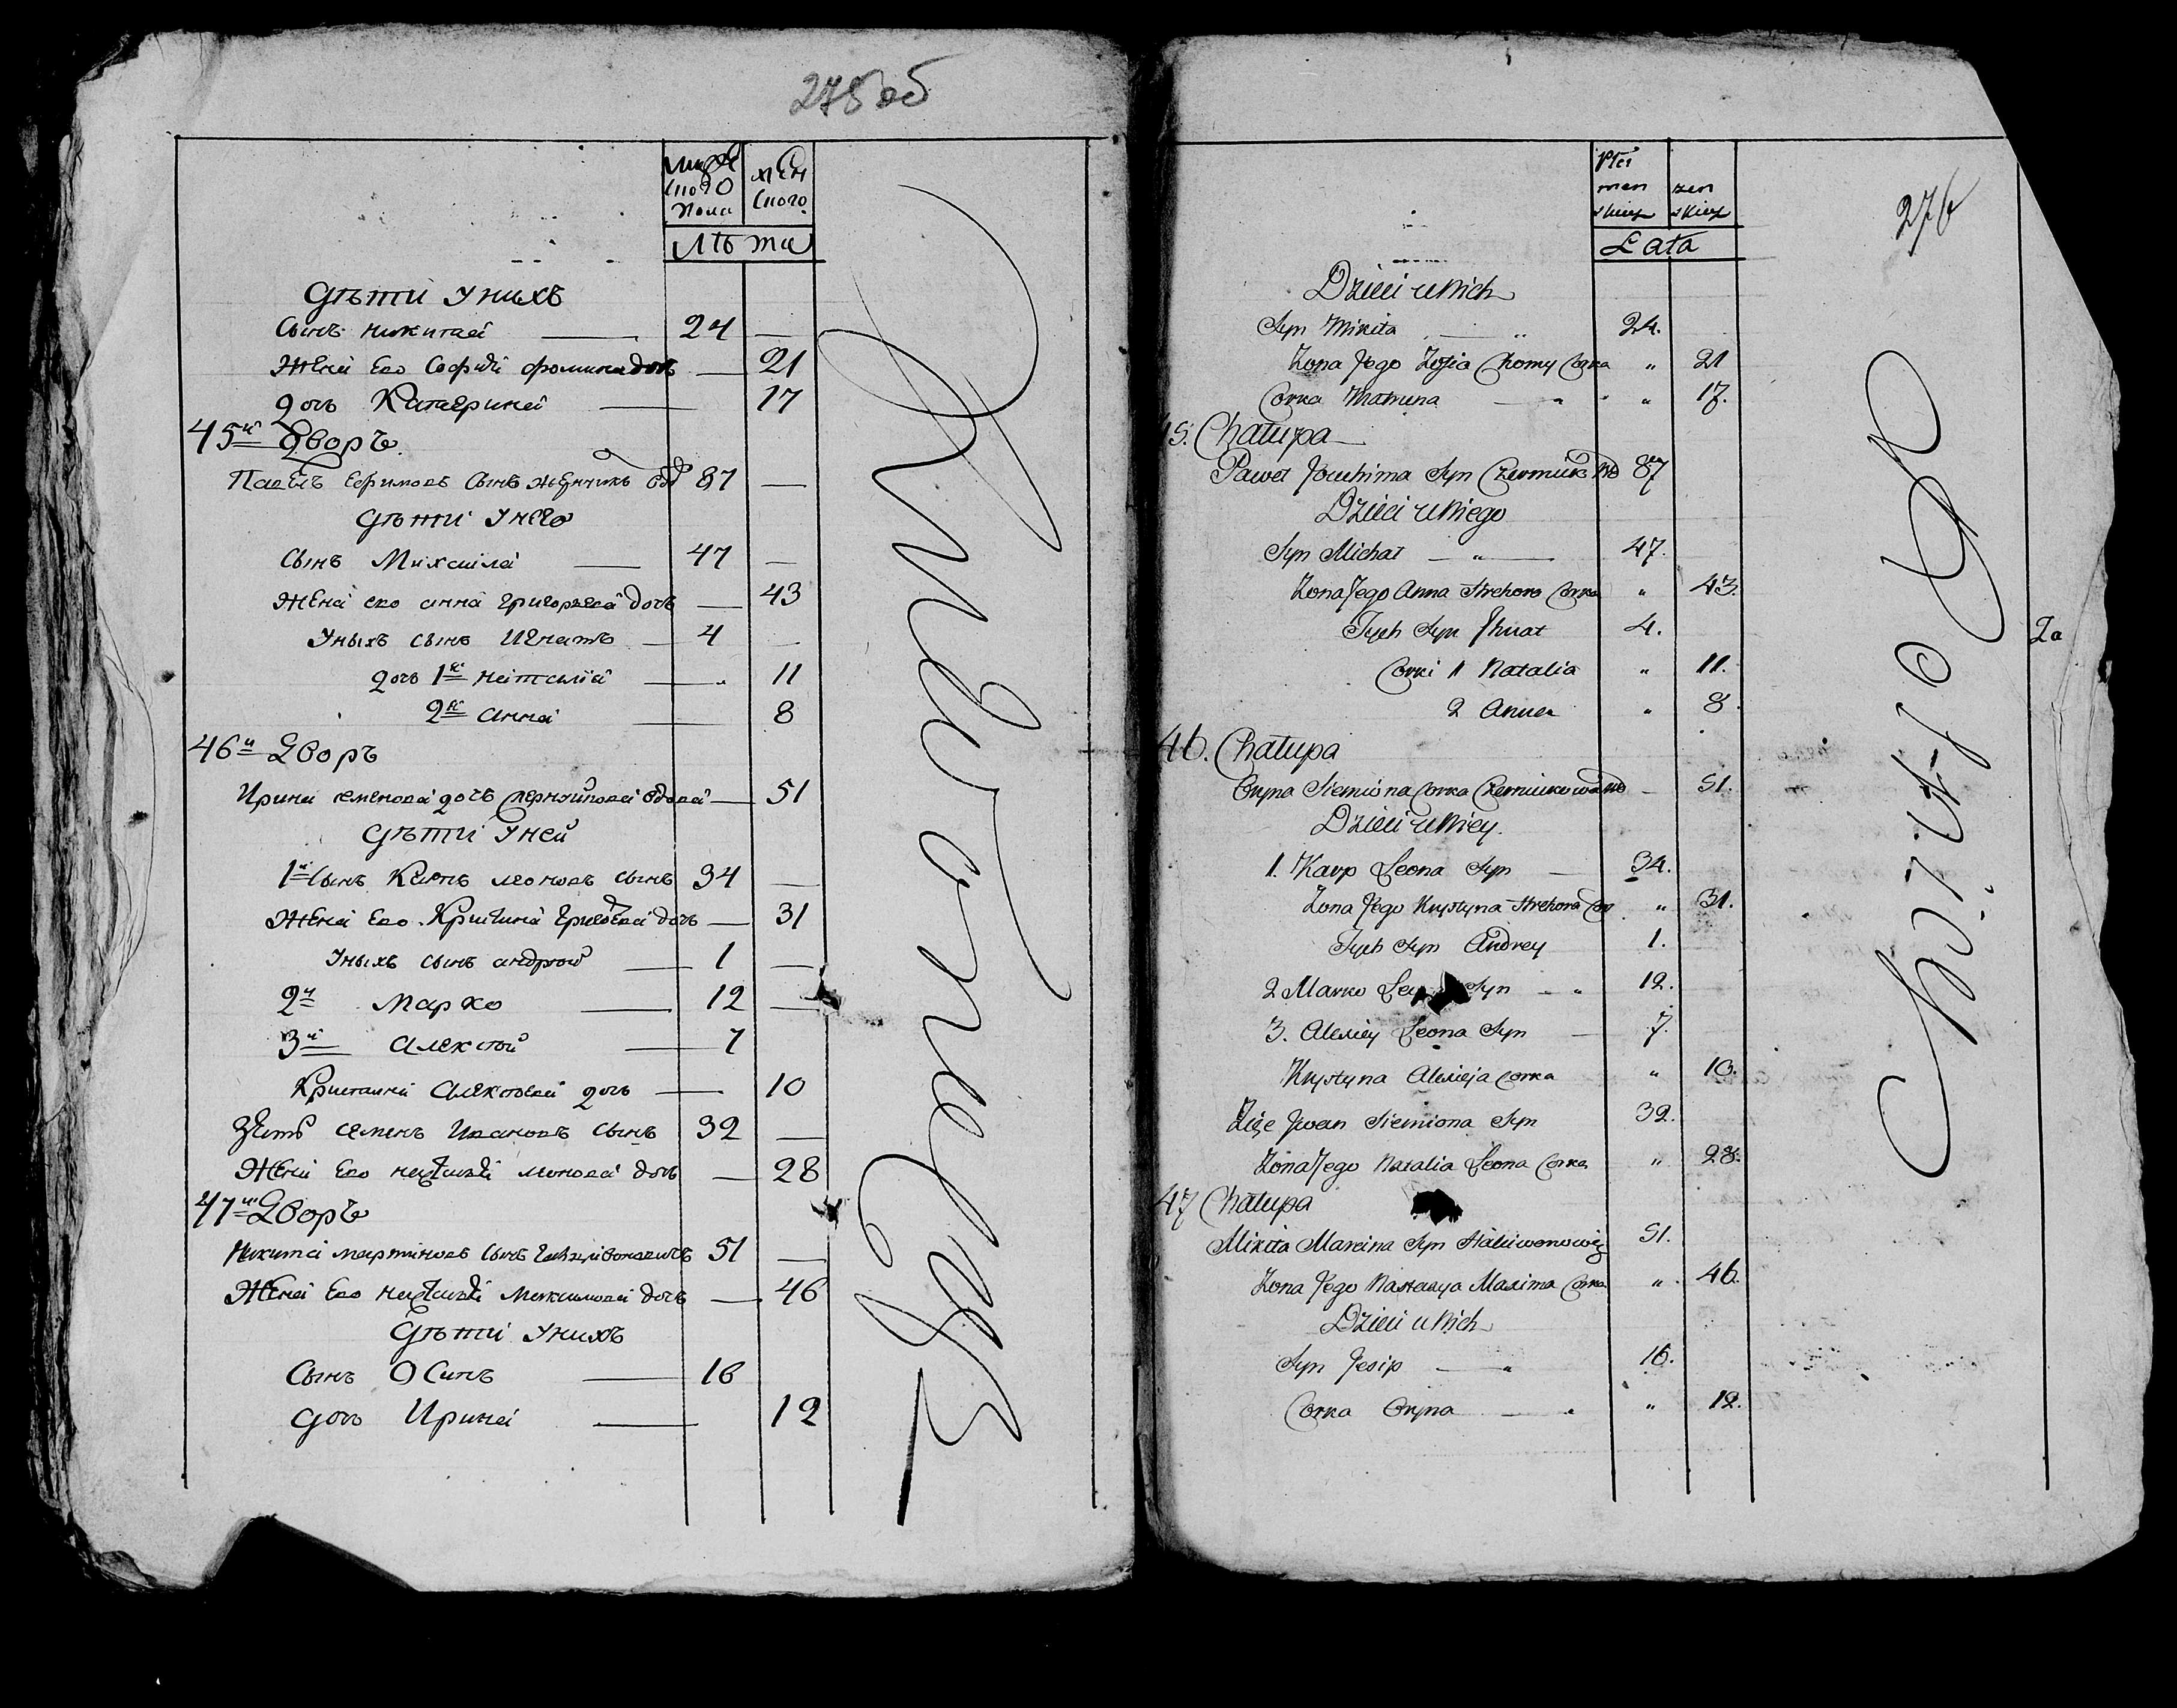 275 об
мужс
кого
пола
жен
ского
Лѣта
Дѣти У нихъ
Сынъ Никита 24
Жена Его Софія Фомина дочь 21
дочь Катерина 17
45й Дворъ
Павелъ Ефимовъ Сынъ вд 87
Дѣти У него
Сынъ Михаила 47
Жена его анна Григорьева дочь 43
У ныхъ сынъ Игнатъ 4
дочь 1я Наталія 11
2я анна 8
46й Дворъ
Ирина семенова дочь вдова 51
Дѣти У ней
1й Сынъ Карпъ леоновъ сынъ 34
Жена Его Кристина дочь 31
У ныхъ сынъ андрей 1
2й Марко 12
3й алексѣй 7
Кристина алексѣева дочь 10
Зять семенъ Ивановъ сынъ 32
Жена Его леонова дочь 28
47й Дворъ
Никита мартиновъ сынъ 51
Жена Его максимова дочь 46
Дѣти У нихъ
Сынъ Осипъ 16
дочь Ирина 12
276
Płci
men
skiey
zen
skiey
Lata
Dzieci u Nich
Syn Mikita " 24.
Zona Jego Zofia Chomy Corka " 21
Corka Matruna " " 17.
45. Chałupa
Paweł Jouchima Syn Czerniuk Wd 87
Dzieci u Niego
Syn Michał " 47.
Zona Jego Anna Hrehora Corka " 43.
Tych Syn Jhnat 4.
Corki 1 Natalia " 11.
2 Anna " 8.
46. Chałupa
Oryna Siemiona Corka Czerniukowa Wd 51.
Dzieci u Niey.
1. Karp Leona Syn 34.
Zona Jego Krystyna Hrehora Cor " 31.
Tych Syn Andrey 1.
2 Marko Syn " 12.
3. Alexiey Leona Syn 7.
Krystyna Alexieja Corka " 10.
Zięc Jwan Siemiona Syn 32.
Zona Jego Natalia Leona Corka " 28.
47 Chałupa
Mikita Marcina Syn 51.
Zona Jego Nastazya Maxima Corka " 46.
Dzieci u Nich
Syn Jesip " 16.
Corka Oryna " " 12.